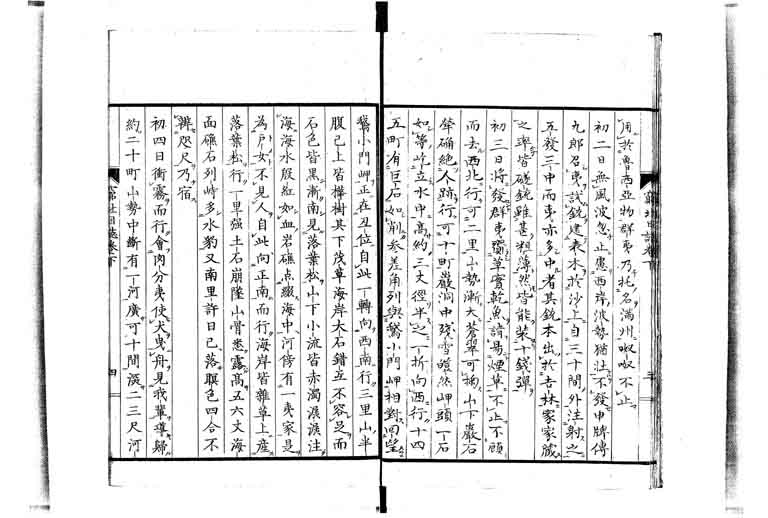 用於魯西亞物群夷乃托名満州呶呶不止
初二日無風波忽止慮西岸波勢猶壮不發申牌傳
九郎召夷試銃建表木於沙上自三十間外注射之
五發三中而夷亦多中者其銃本出於吉林家家蔵
之率皆磋銃雖甚粗薄然皆能装十銭彈
初三日將發群夷獵草實乾魚請易煙草不止不顧
而去西北行可二里山勢漸大蒼翠可摘山下巖石
犖确絶人跡行可十町巖洞中残雪皚然岬頭一石
如筝屹立水中高約三丈徑半之一折向西行十四
五町有巨石如削参差角列與鵞小門岬相對回望
鵞小門岬正在丑位自此一轉向西南行三里山半
腹已上皆樺樹其下茂草海岸大石錯立不容足而
石色皆黒漸南見落葉松山下小流皆赤濁濺濺注
海海水殷紅如血岩礁点綴海中河傍有一夷家是
為戸女不見人自此向正南而行海岸皆雑草上産
落葉松行一里强土石崩墜山骨悉露高五六丈海
面礁石列峙多水豹又南里許日已落暝色四合不
辨咫尺乃宿
初四日衝霧而行會肉分夷使犬曳舟見我輩導歸
約二十町山勢中断有一河廣可十間深二三尺河